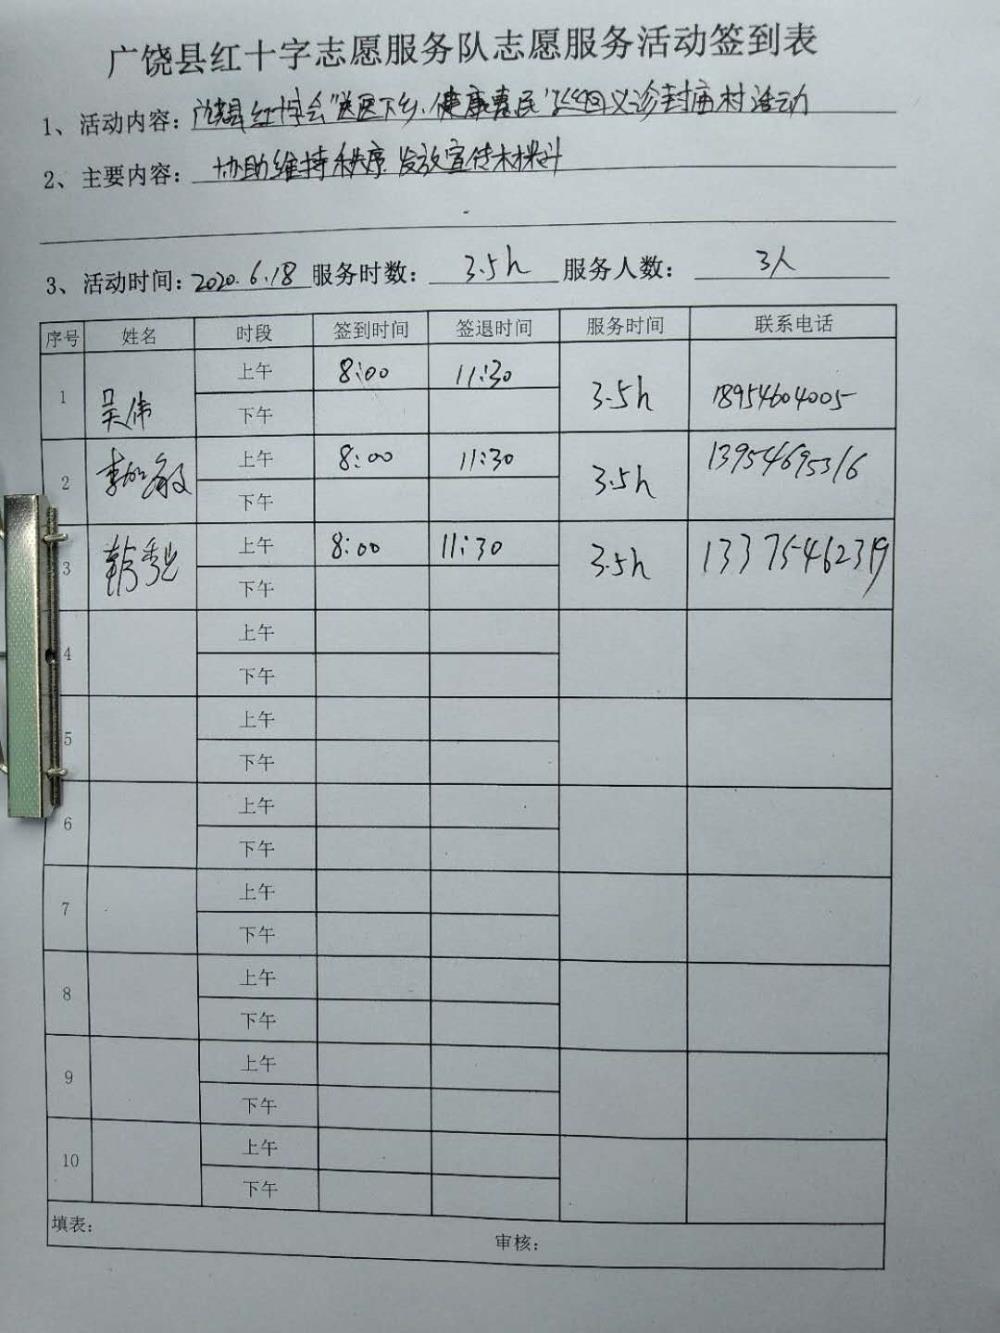 广饶县红十字志愿服务队志愿服务活动签到表
1、活动内容：广饶县红十字会"送医下乡、健康惠民"巡回义诊封庙村活动
2、主要内容：协助维持秩序、发放宣传材料
3、活动时间：2020.6.18 服务时数：3.5h 服务人数：3人
序号 姓名 时段 签到时间 签退时间 服务时间 联系电话
1 吴伟 上午 8:00 11:30 3.5h 18954604005
下午
2 李 敏 上午 8:00 11:30 3.5h 13954695316
下午
3 上午 8:00 11:30 3.5h 13375462319
下午
4 上午
下午
5 上午
下午
6 上午
下午
7 上午
下午
8 上午
下午
9 上午
下午
10 上午
下午
填表： 审核：